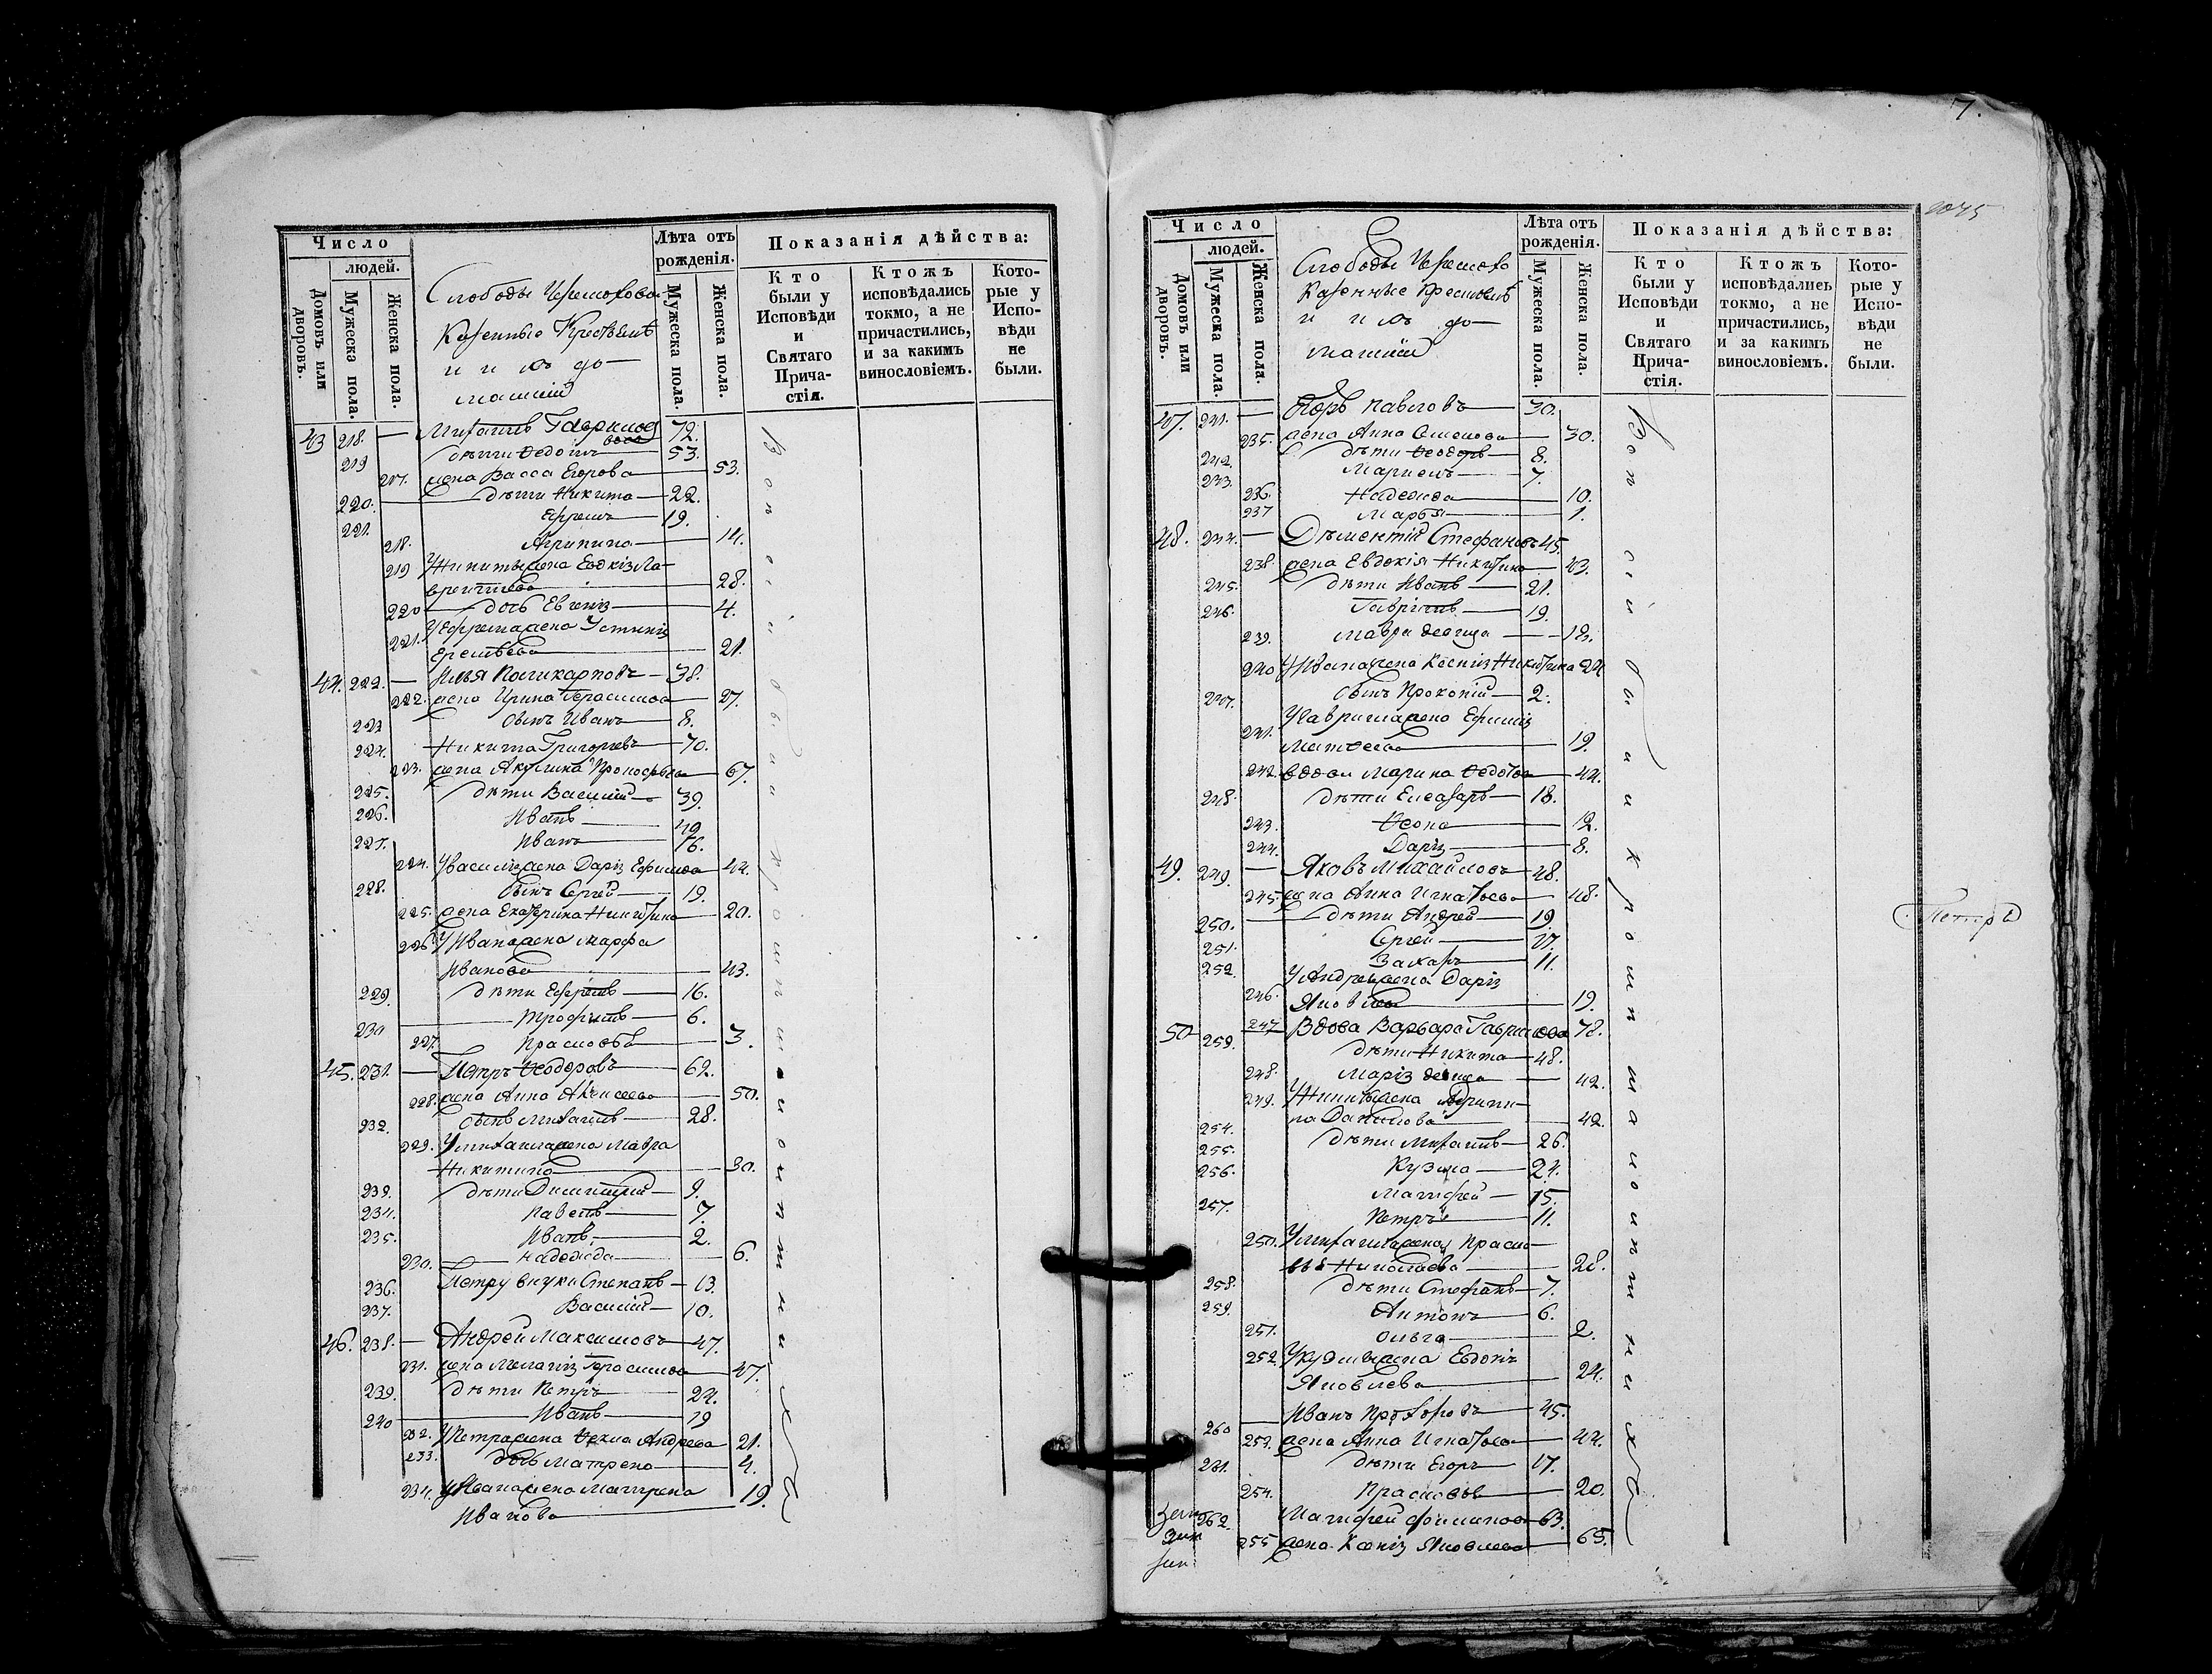 7.
Число
людей.
Домовъ или дворовъ.
Мужеска пола.
Женска пола.
Слободы Черемохова
Казенные Крестьяне
и ихъ до-
машнія
Лѣта отъ рожденія.
Мужеска пола.
Женска пола.
Показанія дѣйства:
Кто были у Исповѣди и Святаго Прича-стія.
Ктожъ исповѣдались токмо, а не причастились, и за какимъ винословіемъ.
Кото-рые у Испо-вѣди не были.
43 218. — Михаилъ Гаврилов 72.
219 дѣти Ѳедотъ 53.
217. жена Васса Егорова 53.
220. дѣти Никита 22.
221. Ефремъ 19.
218. Агрипина 14.
219 У Никиты жена Евдкія Ла-
врентиева 28.
220 дочь Евгенія 4.
221. У Ефрема жена Устинія
Еремѣева 21.
44. 222. — Илья Поликарповъ 38.
222. жена Ирина Герасимова 27.
223 сынъ Иванъ 8.
224. Никита Григорьевъ 70.
223. жена Акулина Прокофьева 67.
225. дѣти Василий 39.
226. Иванъ 49
227. Иванъ 16.
224. У Василія жена Дарія Ефимова 44.
228. сынъ Сергей 19.
225. жена Екатерина Никитина 20.
226 У Ивана жена Марфа
Иванова 43.
229. дѣти Ефремъ 16.
230 Трофимъ 6.
227. Прасковья 3.
45. 231. — Петръ Ѳеодоровъ 62.
228. жена Анна Алексеева 50.
232. сынъ Михаилъ 28.
229. У Михаила жена Мавра
Никитина 30.
233. дѣти Димитрий 9.
234. Павелъ 7.
235. Иванъ 2.
230. Надежда 6.
236. Петру внуки Степанъ 13.
237. Василий 10.
46. 238. — Андрей Максимовъ 47.
231. жена Меланія Герасимова 47.
239. дѣти Петръ 24.
240 Иванъ 19
232. У Петра жена Ѳекла Андреева 21.
233. дочь Матрена 4.
234. У Ивана жена Матрена 19.
Иванова
Всп сій были и
2045
Число
людей.
Домовъ или дворовъ.
Мужеска пола.
Женска пола.
Слободы Черемохо
Казенные Крестьянѣ
и ихъ до
машнія
Лѣта отъ рожденія.
Мужеска пола.
Женска пола.
Показанія дѣйства:
Кто были у Исповѣди и Святаго Прича-стія.
Ктожъ исповѣдались токмо, а не причастились, и за какимъ винословіемъ.
Кото-рые у Испо-вѣди не были.
47. 241. — Павловъ 30.
235. жена Анна Семенова 30.
242. дѣти Ѳеодоръ 8.
243. 7.
236. Надежда 10.
237 Марья 1.
48. 244. — Дѣментій Стефановъ 45.
238. жена Евдокія Никитина 43.
245. дѣти Иванъ 21.
246. Гавріилъ 19.
239. Мавра девица 18.
240 У Ивана жена Ксенія Никитина 24
247. сынъ Прокопій 2.
241. У Гаврила жена Ефимія
Матвеева 19.
242. вдова Марина Ѳедотова 44.
248. дѣти Елеазаръ 18.
243. Ѳеона 12.
244. Дарія 8.
49. 249. — Яковъ Михайловъ 48.
245. жена Анна Игнатьева 48.
250. дѣти Андрей 19.
251. Сергей 17.
252. Захаръ 11.
246. У Андрея жена Дарія
Яковлева 19.
50 247 Вдова Варвара Гаврилова 78.
259. дѣти Никита 48.
248. Марія девица 42.
249. У Никиты жена Агрипи-
на Данилова 42.
254. дѣти Михаилъ 26.
255. Кузма 24.
256. Матфей 15.
257. Петръ 11.
250. У Михаила жена Праско-
вья Николаева 28.
258. дѣти Стефанъ 7.
259. Антонъ 6.
251. Ольга 2.
252. У Кузмы жена Евдокія
Яковлева 24.
260 Иванъ Прохоровъ 45.
253. жена Анна Игнатьева 44.
261. дѣти Егоръ 17.
254. Прасковья 20.
262. Матфей Филиповъ 63.
255 жена Ксенія Яковлева 65.
Петръ